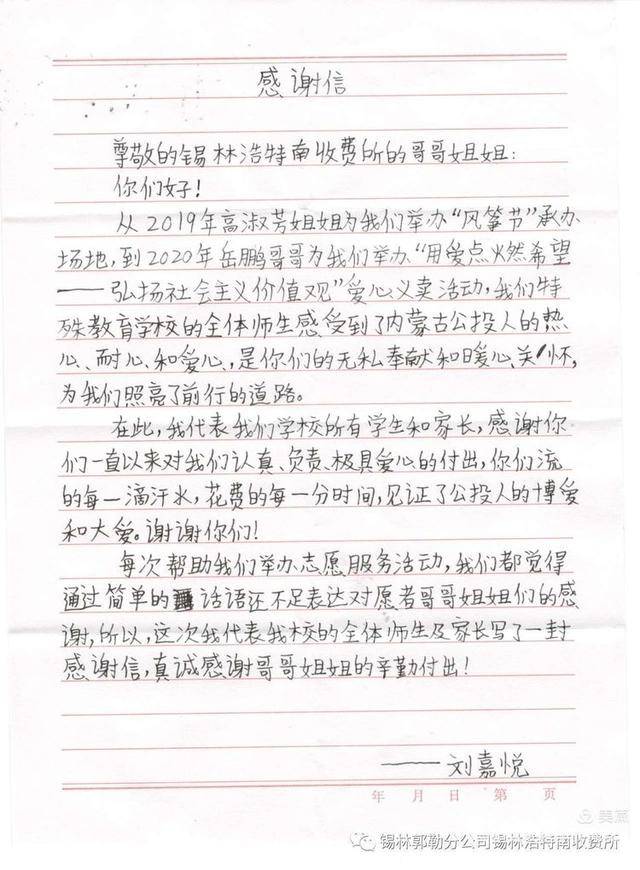 感谢信
尊敬的锡林浩特南收费所的哥哥姐姐:
你们好!
从2019年高淑芳姐姐为我们举办“风筝节”承办
场地,到2020年岳鹏哥哥为我们举办“用爱点燃希望
——弘扬社会主义价值观”爱心义卖活动,我们特
殊教育学校的全体师生感受到了内蒙古公投人的热
心、耐心、和爱心,是你们的无私奉献和暖心关怀,
为我们照亮了前行的道路。
在此,我代表我们学校所有学生和家长,感谢你
们一直以来对我们认真、负责、极具爱心的付出,你们流
的每一滴汗水,花费的每一分时间,见证了公投人的博爱
和大爱。谢谢你们!
每次帮助我们举办志愿服务活动,我们都觉得
通过简单的话语还不足表达对愿者哥哥姐姐们的感
谢,所以,这次我代表我校的全体师生及家长写了一封
感谢信,真诚感谢哥哥姐姐的辛勤付出!
——刘嘉悦
年 月 日 第 页
美篇
锡林郭勒分公司锡林浩特南收费所